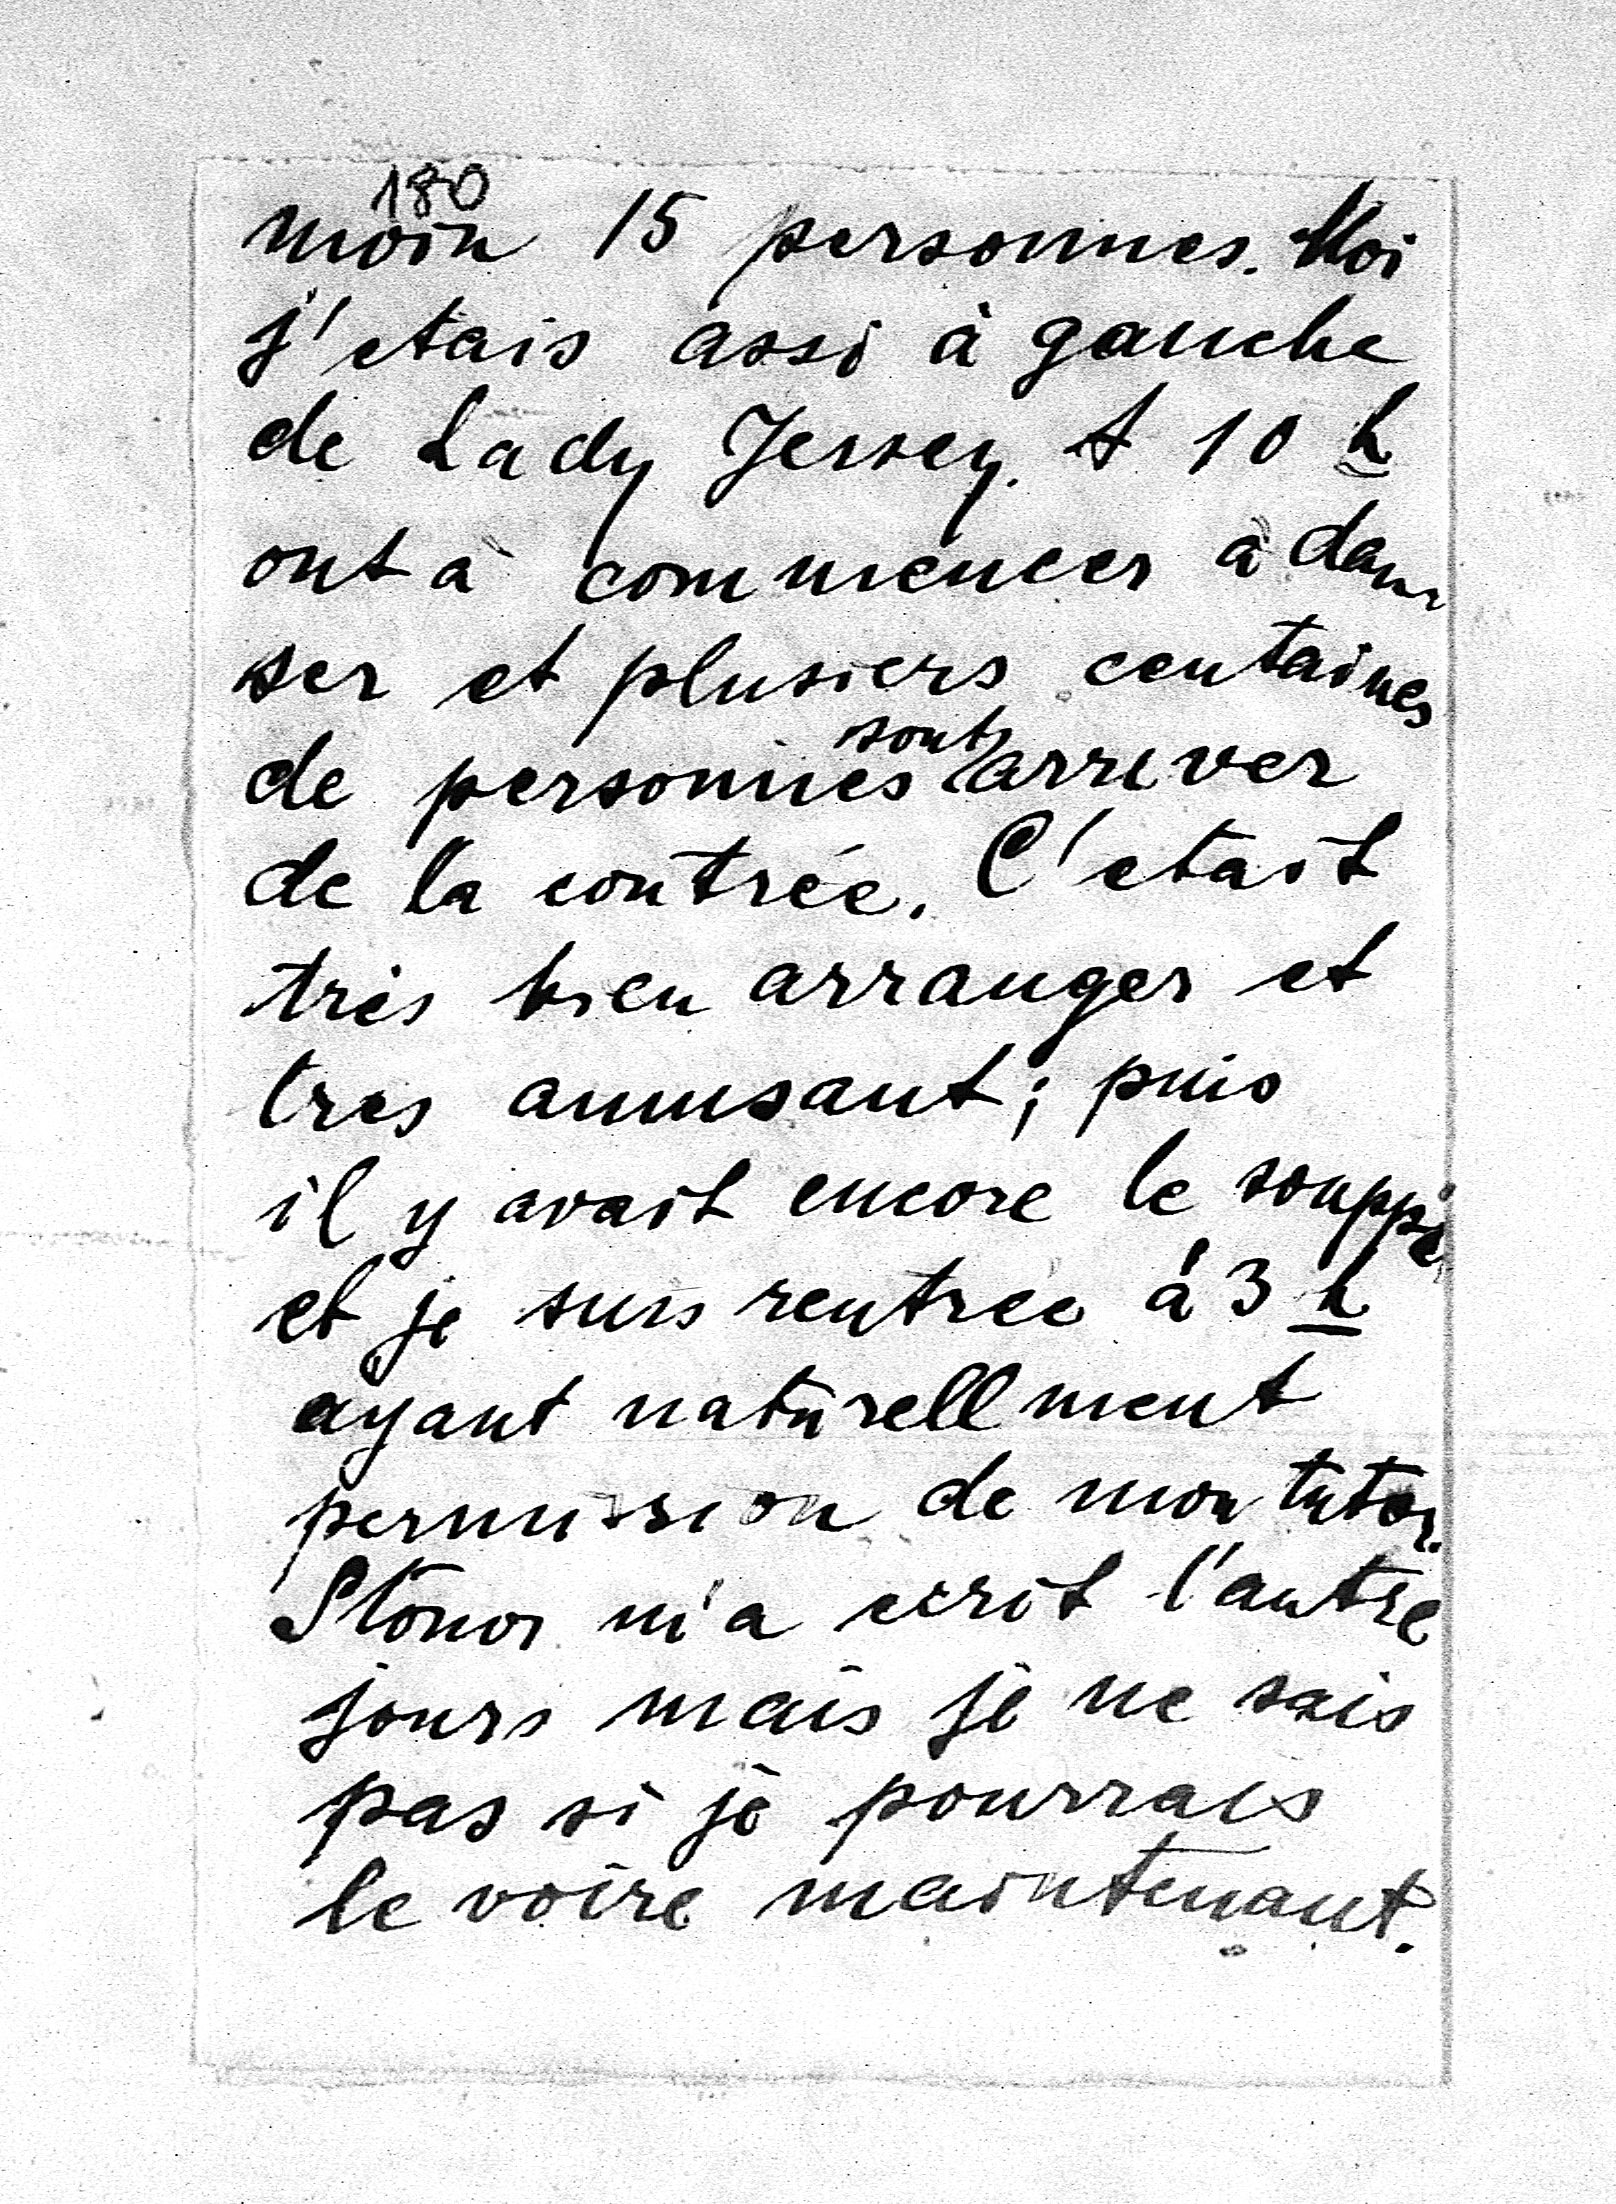 180
moin 15 personnes. Moi
j'etais assi à gauche
de Lady Jersey. A 10 h
ont à commencer à dan-
ser et plusiers centaines
sont
de personnes arriver
de la contrée. C'etait
très bien arranger et
tres amusant; puis
il y avait encore le
et je suis rentrée à 3 h
ayant naturellment
permission de mon tutor.
Stonor m'a ecrit l'autre
jours mais je ne sais
pas si je pourrais
le voire maintenant.